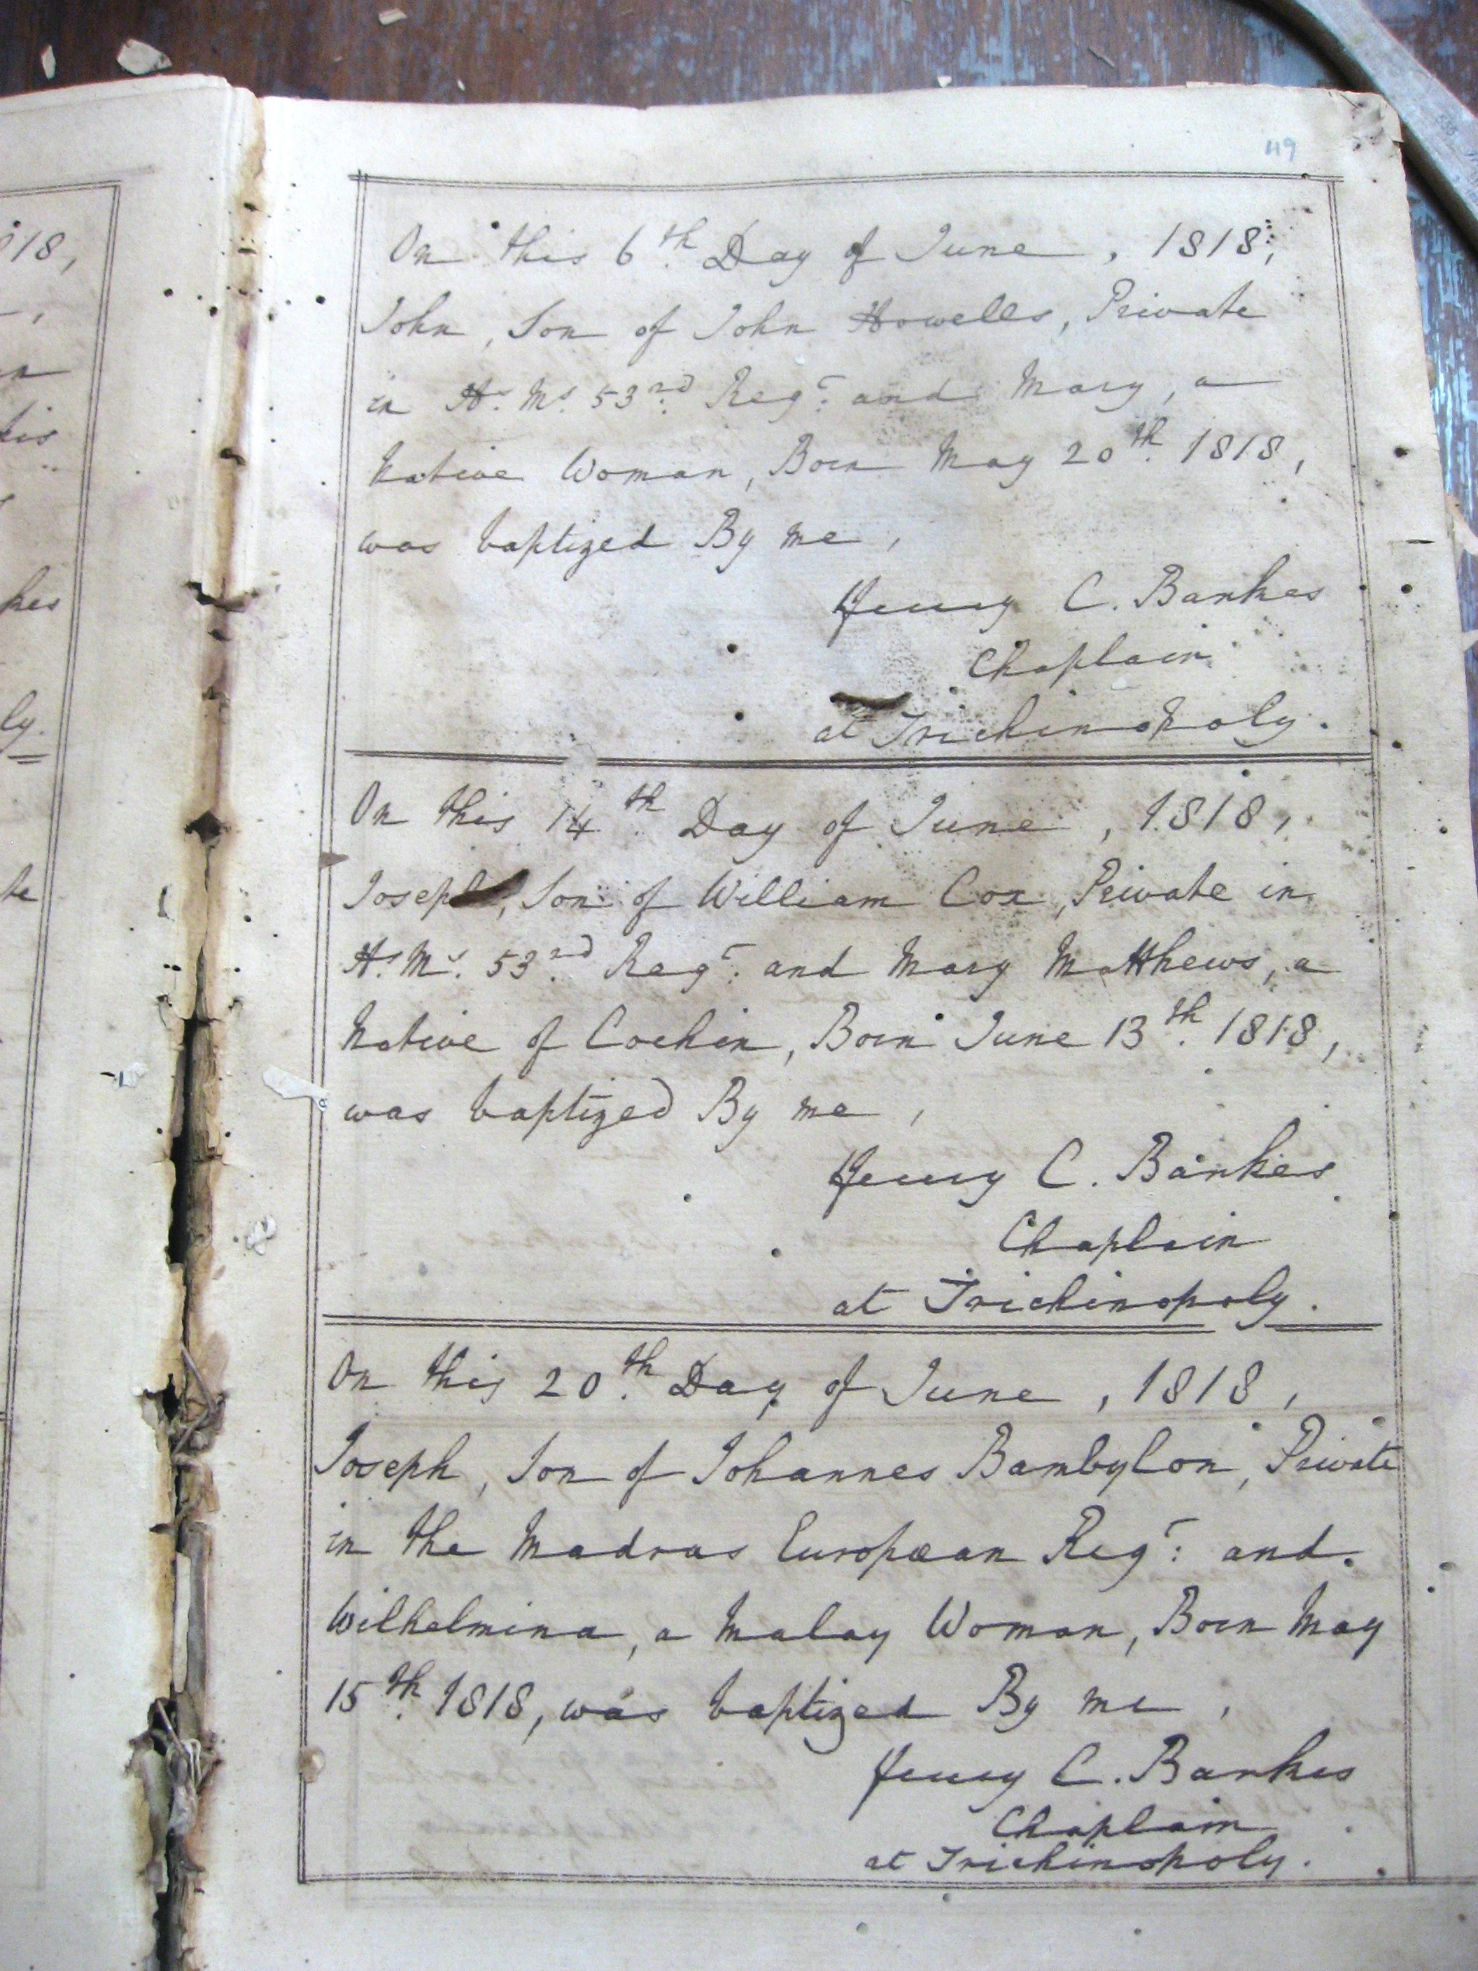 49
On this 6th Day of June, 1818,
John, Son of John Howells, Private
in Hs. Ms. 53rd Regt: and Mary, a
Native Woman, Born May 20th 1818,
was baptized By me,
Henry C. Bankes
Chaplain
at Trichinopoly.
On this 14th Day of June, 1818,
Joseph, Son of William Cox, Private in
Hs. Ms. 53rd Regt: and Mary Matthews, a
Native of Cochin, Born June 13th 1818,
was baptized By me,
Henry C. Bankes
Chaplain
at Trichinopoly.
On this 20th Day of June, 1818,
Joseph, Son of Johannes Bambylon, Private
in the Madras European Regt: and
Wilhelmina, a Malay Woman, Born May
15th 1818, was baptized By me,
Henry C. Bankes
Chaplain
at Trichinopoly.